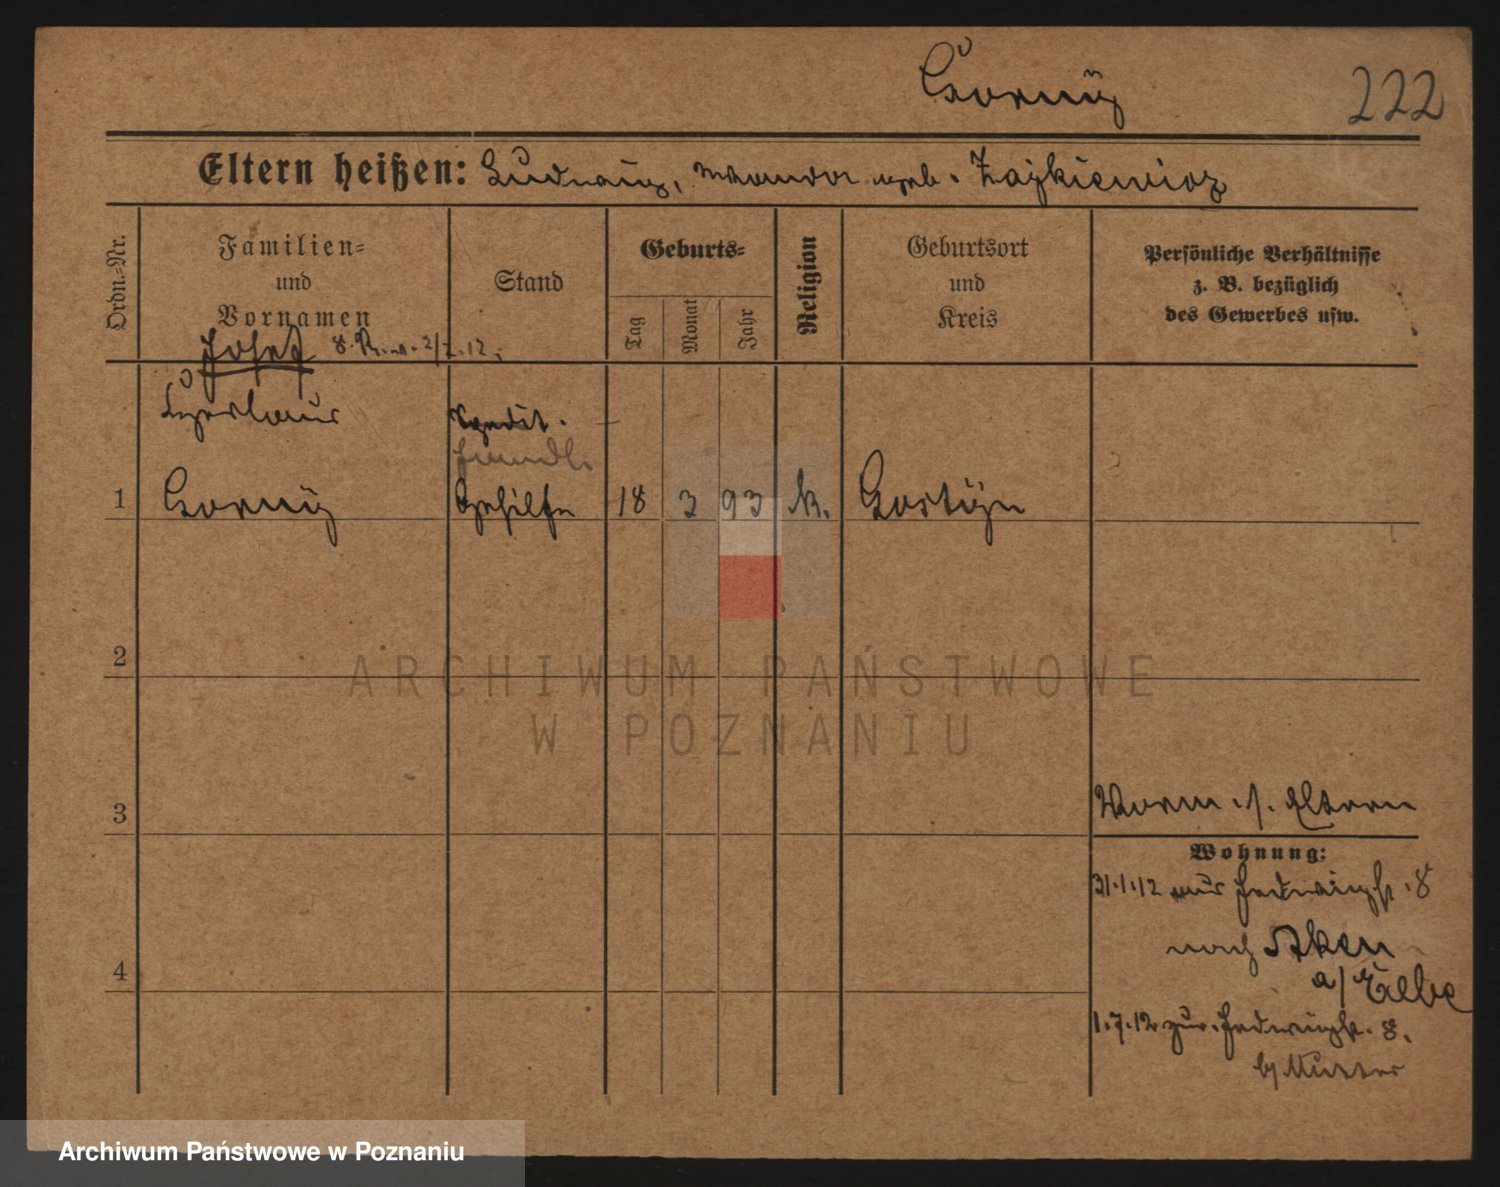 Gornÿ
222
Eltern heißen: Ludwig, Wanda geb. Zajkiewicz
Ordn.-Nr.
Familien-
und
Vornamen
Stand
Geburts-
Tag
Monat
Jahr
Religion
Geburtsort
und
Kreis
Persönliche Verhältnisse
z. B. bezüglich
des Gewerbes usw.
Josef
Czeslaus
Handl.
1 Gornÿ Gehilfe 18 3 93 K. Gostÿn
2
3
s. Eltern
Wohnung:
31.1.12 aus Hedwigst. 8
nach Aken
a/Elbe
4
1.7.12 zur. Hedwigst. 8.
b/ Mutter
ARCHIWUM PAŃSTWOWE
W POZNANIU
Archiwum Państwowe w Poznaniu